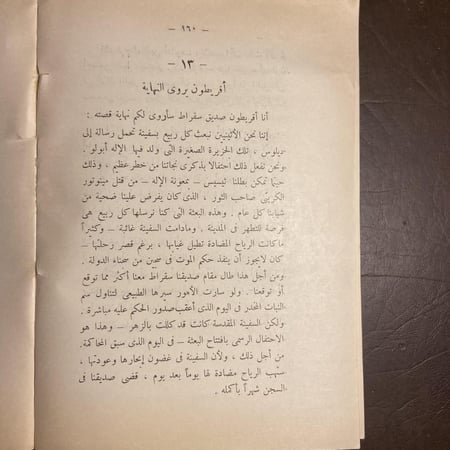 — ١٦٠ —
— ١٣ —
أقريطون يروى النهاية
أنا أقريطون صديق سقراط سأروى لكم نهاية قصته :
إننا نحن الأثينيين نبعث كل ربيع بسفينة تحمل رسالة إلى
ديلوس ، تلك الجزيرة الصغيرة التى ولد فيها الإله أبولو .
ونحن نفعل ذلك احتفالا بذكرى نجاتنا من خطر عظيم ، وذلك
حينما تمكن بطلنا ثيسيس – بمعونة الإله – من قتل مينوتور
الكريتى صاحب الثور ، الذى كان يفرض علينا ضحية من
شبابنا كل عام . وهذه البعثة التى كنا نرسلها كل ربيع هى
فرصة للتطهر فى المدينة . ومادامت السفينة غائبة – وكثيراً
ما كانت الرياح المضادة تطيل غيابها ، برغم قصر رحلتها –
كان لا يجوز أن ينفذ حكم الموت فى سجن من سجناء الدولة .
ومن أجل هذا طال مقام صديقنا سقراط معنا أكثر مما توقع
أو توقعنا . ولو سارت الأمور سيرها الطبيعى لتناول سم
النبات المخدر فى اليوم الذى أعقب صدور الحكم عليه مباشرة .
ولكن السفينة المقدسة كانت قد كللت بالزهر – وهذا هو
الاحتفال الرسمى بافتتاح البعثة – فى اليوم الذى سبق المحاكمة.
من أجل ذلك ، ولأن السفينة فى غضون إبحارها وعودتها ،
ستهب الرياح مضادة لها يوماً بعد يوم ، قضى صديقنا فى
السجن شهراً بأكمله .